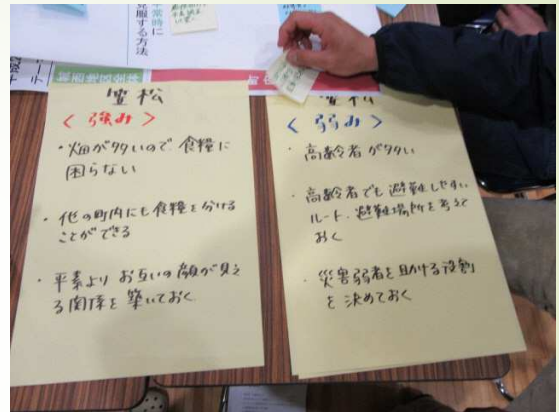 常時に
克服する方法
笠松
＜強み＞
・畑が多いので食糧に
困らない
・他の町内にも食糧を分ける
ことができる
・平素よりお互いの顔が見え
る関係を築いておく
笠松
＜弱み＞
・高齢者が多い
・高齢者でも避難しやすい
ルート、避難場所を考えて
おく
・災害弱者を助ける役割
を決めておく